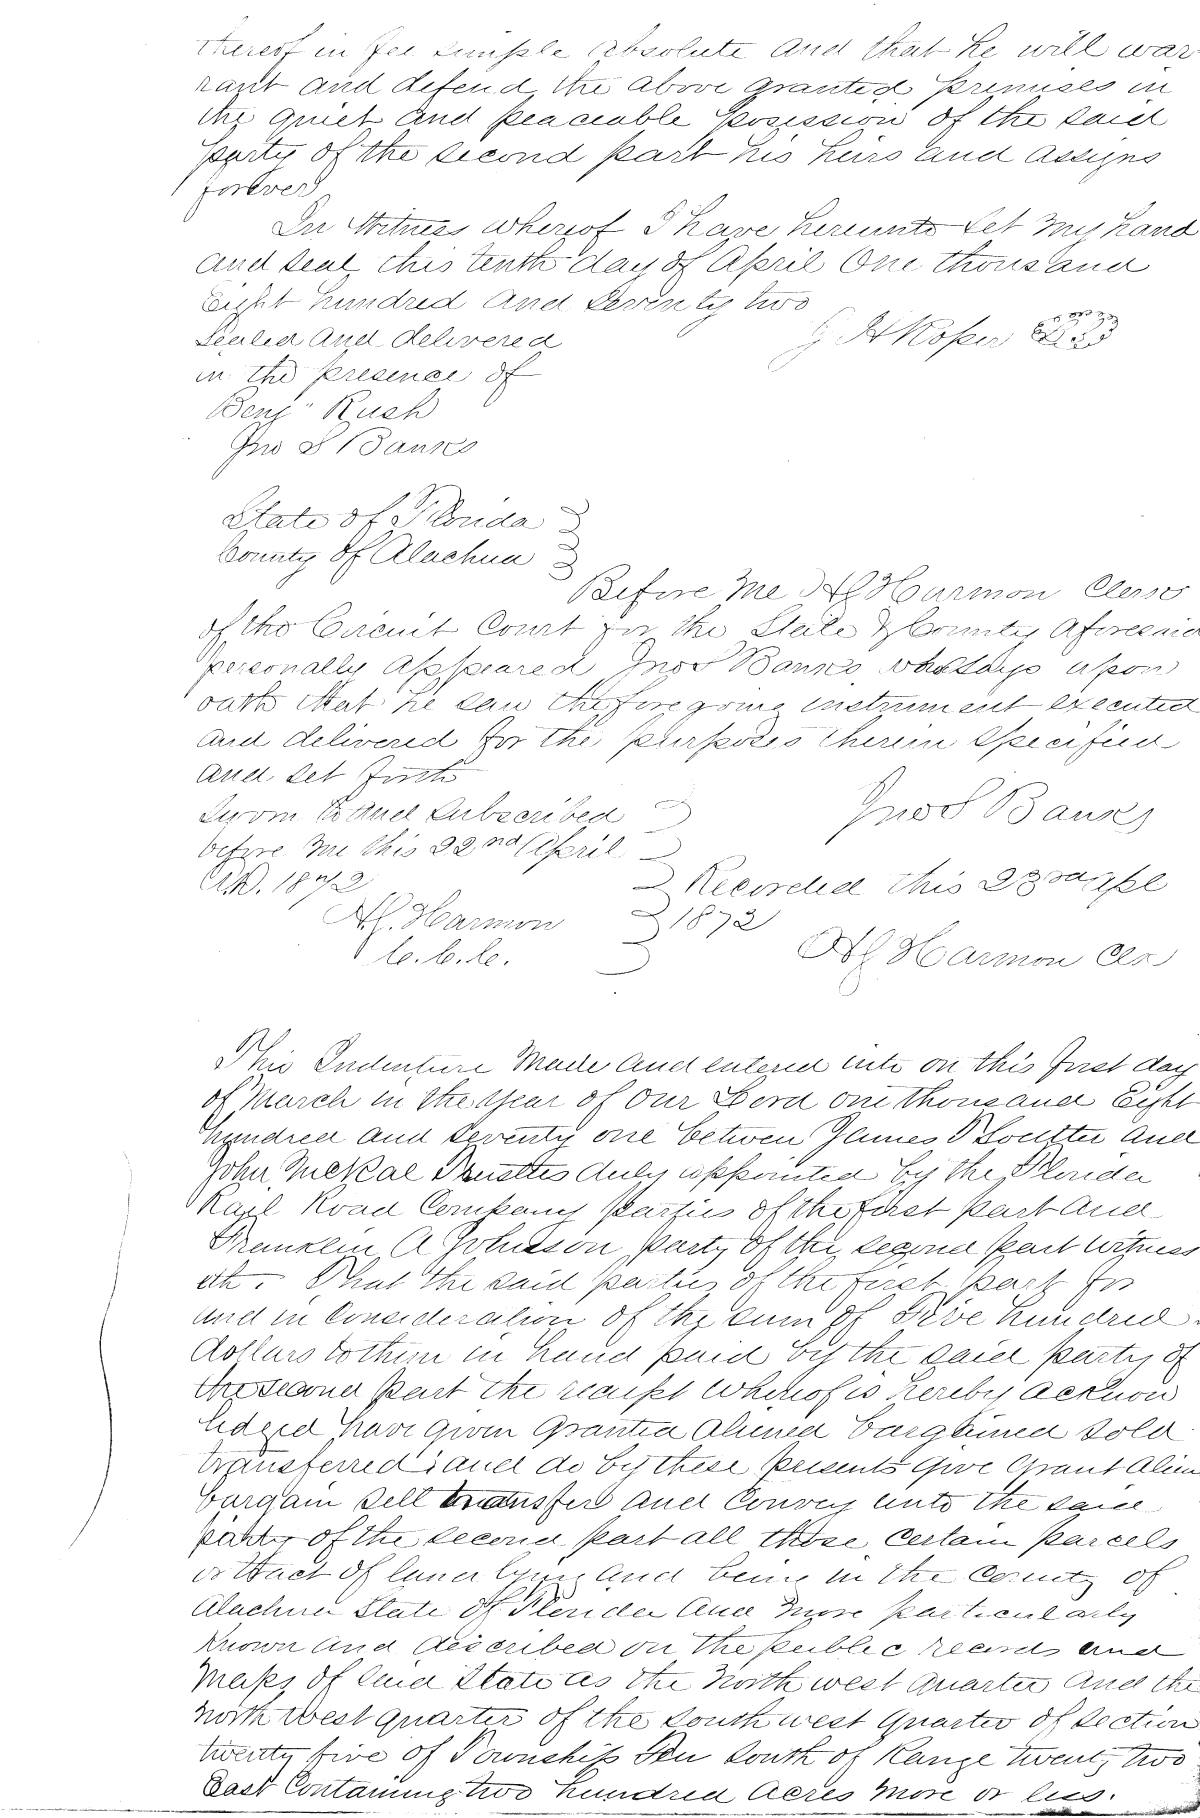 thereof in fee simple absolute and that he will war-
rant and defend the above granted premises in
the quiet and peaceable posession of the said
party of the second part his heirs and assigns
forever
In Witness whereof I have hereunto set my hand
and seal this tenth day of April One thousand
Eight hundred and seventy two
Sealed and delivered
G H Roper
in the presence of
Benj" Rush
Jno S Banks
State of Florida
County of Alachua
Before me H G Harmon Clerk
of the Circuit Court for the State & County Aforesaid
personally appeared Jno S Banks who says upon
oath that he saw the foregoing instrument executed
and delivered for the purposes therein specified
and set forth
Jno S Banks
Sworn to and subscribed
before me this 22nd April
A.D. 1872
Recorded this 23rd Apl
1872
H.G. Harmon
C.C.C.
H G Harmon Clk
This Indenture Made and entered into on this first day
of March in the year of our Lord one thousand Eight
hundred and seventy one betwen James Soutter and
John McRae Trustees duly appointed by the Florida
Rail Road Company parties of the first part and
Franklin A Johnson party of the second part witness
eth. That the said parties of the first part for
and in consideration of the sum of Five hundred
dollars to them in hand paid by the said party of
the second part the receipt whereof is hereby acknow
ledged have given granted aliened bargained sold
transferred and do by these presents give grant alien
bargain sell transfer and convey unto the said
party of the second part all those certain parcels
or tract of land lying and being in the County of
Alachua State of Florida and more particularly
known and described on the public records and
maps of said State as the North west quarter and the
north west quarter of the south west quarter of section
twenty five of Township Ten south of Range twenty two
East Containing two hundred acres more or less.